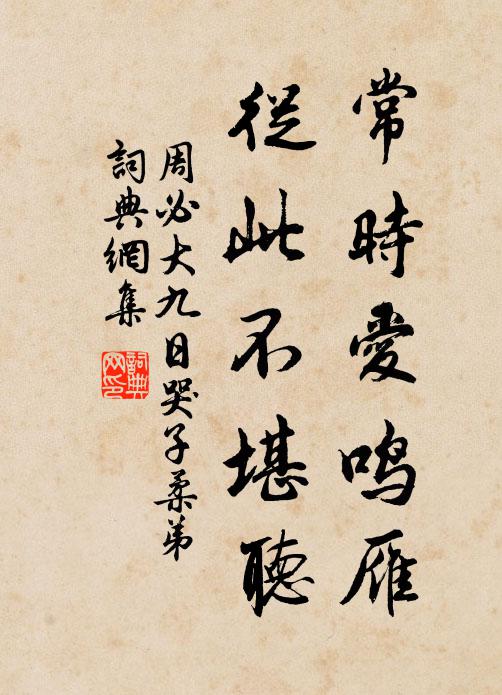 常時愛鳴雁
從此不堪聽
周必大九日哭子柔弟
詞典網集
詞典网印